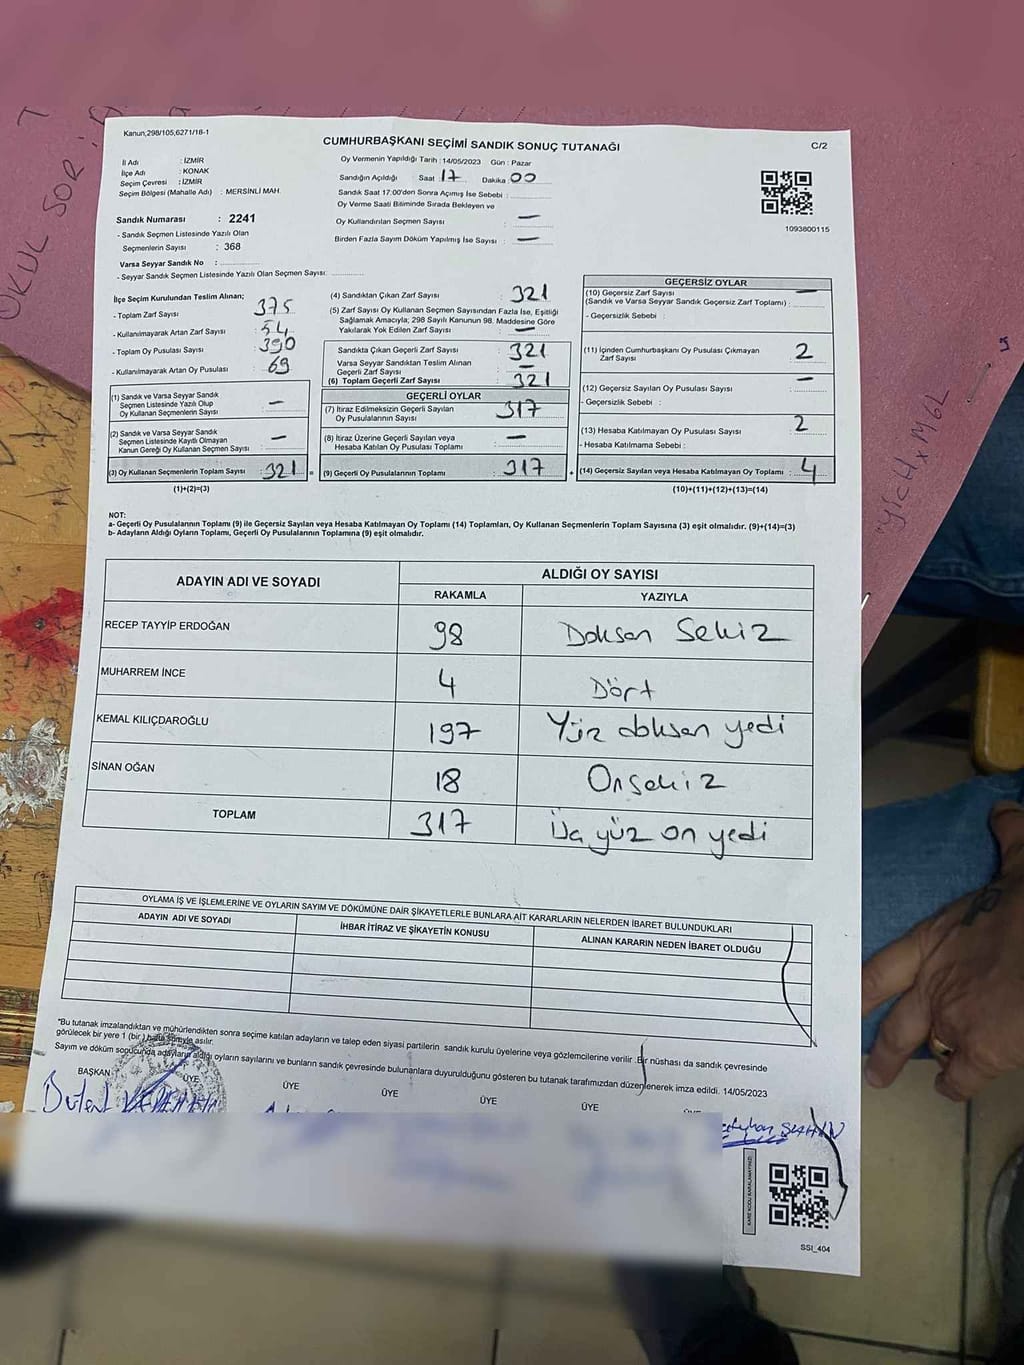 Kanun,298/105,6271/18-1
CUMHURBAŞKANI SEÇİMİ SANDIK SONUÇ TUTANAĞI
C/2
İl Adı : İZMİR
İlçe Adı : KONAK
Seçim Çevresi : İZMİR
Seçim Bölgesi (Mahalle Adı) : MERSİNLİ MAH.
Sandık Numarası : 2241
- Sandık Seçmen Listesinde Yazılı Olan
Seçmenlerin Sayısı : 368
Varsa Seyyar Sandık No :
- Seyyar Sandık Seçmen Listesinde Yazılı Olan Seçmen Sayısı:
Oy Vermenin Yapıldığı Tarih :14/05/2023 Gün : Pazar
Sandığın Açıldığı Saat : 17 Dakika : 00
Sandık Saat 17:00'den Sonra Açımış İse Sebebi :
Oy Verme Saati Bitiminde Sırada Bekleyen ve
Oy Kullandırılan Seçmen Sayısı : —
Birden Fazla Sayım Döküm Yapılmış İse Sayısı : —
1093800115
İlçe Seçim Kurulundan Teslim Alınan;
- Toplam Zarf Sayısı : 375
- Kullanılmayarak Artan Zarf Sayısı : 54
- Toplam Oy Pusulası Sayısı : 390
- Kullanılmayarak Artan Oy Pusulası : 69
(1) Sandık ve Varsa Seyyar Sandık
Seçmen Listesinde Yazılı Olup
Oy Kullanan Seçmenlerin Sayısı : —
(2) Sandık ve Varsa Seyyar Sandık
Seçmen Listesinde Kayıtlı Olmayan
Kanun Gereği Oy Kullanan Seçmen Sayısı : —
(3) Oy Kullanan Seçmenlerin Toplam Sayısı : 321 =
(1)+(2)=(3)
(4) Sandıktan Çıkan Zarf Sayısı : 321
(5) Zarf Sayısı Oy Kullanan Seçmen Sayısından Fazla İse, Eşitliği
Sağlamak Amacıyla; 298 Sayılı Kanunun 98. Maddesine Göre
Yakılarak Yok Edilen Zarf Sayısı : —
Sandıkta Çıkan Geçerli Zarf Sayısı : 321
Varsa Seyyar Sandıktan Teslim Alınan
Geçerli Zarf Sayısı : —
(6) Toplam Geçerli Zarf Sayısı : 321
GEÇERLİ OYLAR
(7) İtiraz Edilmeksizin Geçerli Sayılan
Oy Pusulalarının Sayısı : 317
(8) İtiraz Üzerine Geçerli Sayılan veya
Hesaba Katılan Oy Pusulası Toplamı : —
(9) Geçerli Oy Pusulalarının Toplamı : 317 +
GEÇERSİZ OYLAR
(10) Geçersiz Zarf Sayısı : —
(Sandık ve Varsa Seyyar Sandık Geçersiz Zarf Toplamı) :
- Geçersizlik Sebebi :
(11) İçinden Cumhurbaşkanı Oy Pusulası Çıkmayan
Zarf Sayısı : 2
(12) Geçersiz Sayılan Oy Pusulası Sayısı : —
- Geçersizlik Sebebi :
(13) Hesaba Katılmayan Oy Pusulası Sayısı : 2
- Hesaba Katılmama Sebebi :
(14) Geçersiz Sayılan veya Hesaba Katılmayan Oy Toplamı : 4
(10)+(11)+(12)+(13)=(14)
NOT:
a- Geçerli Oy Pusulalarının Toplamı (9) ile Geçersiz Sayılan veya Hesaba Katılmayan Oy Toplamı (14) Toplamları, Oy Kullanan Seçmenlerin Toplam Sayısına (3) eşit olmalıdır. (9)+(14)=(3)
b- Adayların Aldığı Oyların Toplamı, Geçerli Oy Pusulalarının Toplamına (9) eşit olmalıdır.
ADAYIN ADI VE SOYADI
ALDIĞI OY SAYISI
RAKAMLA YAZIYLA
RECEP TAYYİP ERDOĞAN 98 Doksan Sekiz
MUHARREM İNCE 4 Dört
KEMAL KILIÇDAROĞLU 197 Yüz doksan yedi
SİNAN OĞAN 18 Onsekiz
TOPLAM 317 yüz on yedi
OYLAMA İŞ VE İŞLEMLERİNE VE OYLARIN SAYIM VE DÖKÜMÜNE DAİR ŞİKAYETLERLE BUNLARA AİT KARARLARIN NELERDEN İBARET BULUNDUKLARI
ADAYIN ADI VE SOYADI İHBAR İTİRAZ VE ŞİKAYETİN KONUSU ALINAN KARARIN NEDEN İBARET OLDUĞU
"Bu tutanak imzalandıktan ve mühürlendikten sonra seçime katılan adayların ve talep eden siyasi partilerin sandık kurulu üyelerine veya gözlemcilerine verilir. Bir nüshası da sandık çevresinde
görülecek bir yere 1 (bir) hafta süreyle asılır.
Sayım ve döküm sonucunda adayların aldığı oyların sayılarını ve bunların sandık çevresinde bulunanlara duyurulduğunu gösteren bu tutanak tarafımızdan düzenlenerek imza edildi. 14/05/2023
BAŞKAN ÜYE ÜYE ÜYE ÜYE ÜYE
ŞAHİN
KARE KODU KARALAMAYINIZ!
SSI_404
OKUL SOR